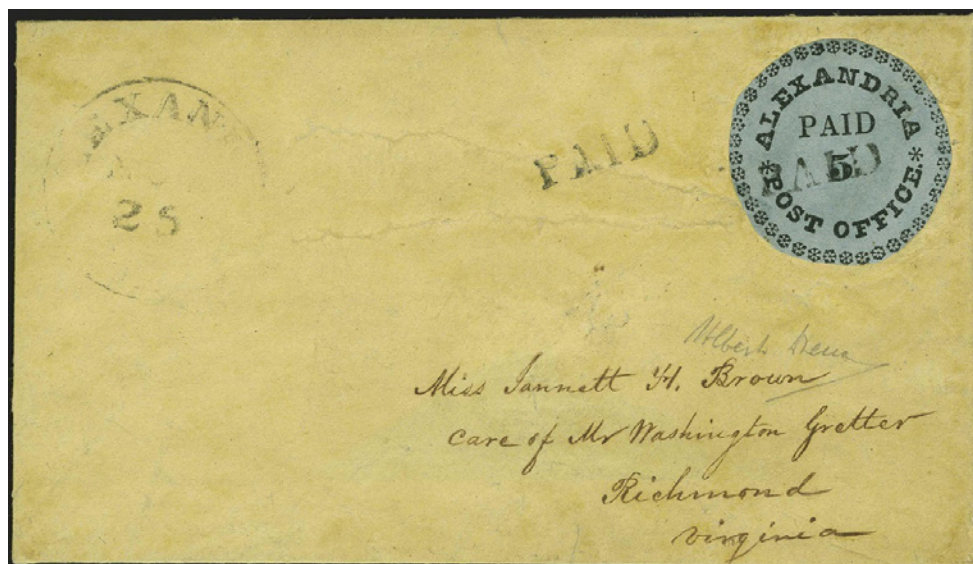 EXAN
25
PAID
ALEXANDRIA
PAID
5
PAID
* POST OFFICE *
Miss Jannett H. Brown
care of Mr Washington Gretter
Richmond
Virginia